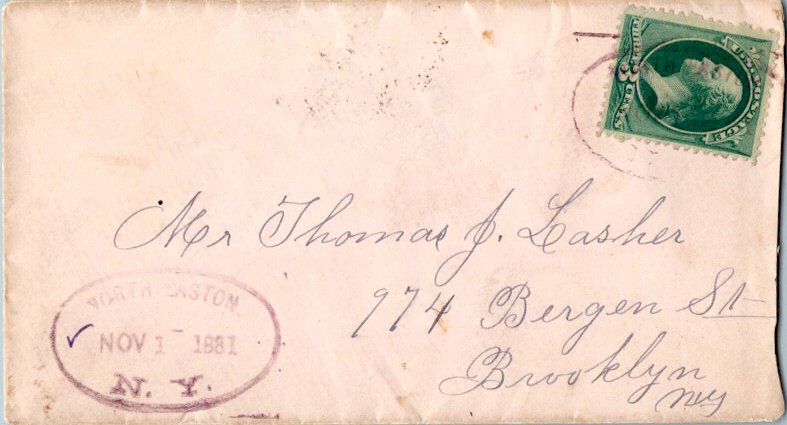 U.S. POSTAGE
3
CENTS
Mr Thomas J. Lasher
974 Bergen St
Brooklyn
NY
NORTH EASTON,
NOV 1 1881
N. Y.